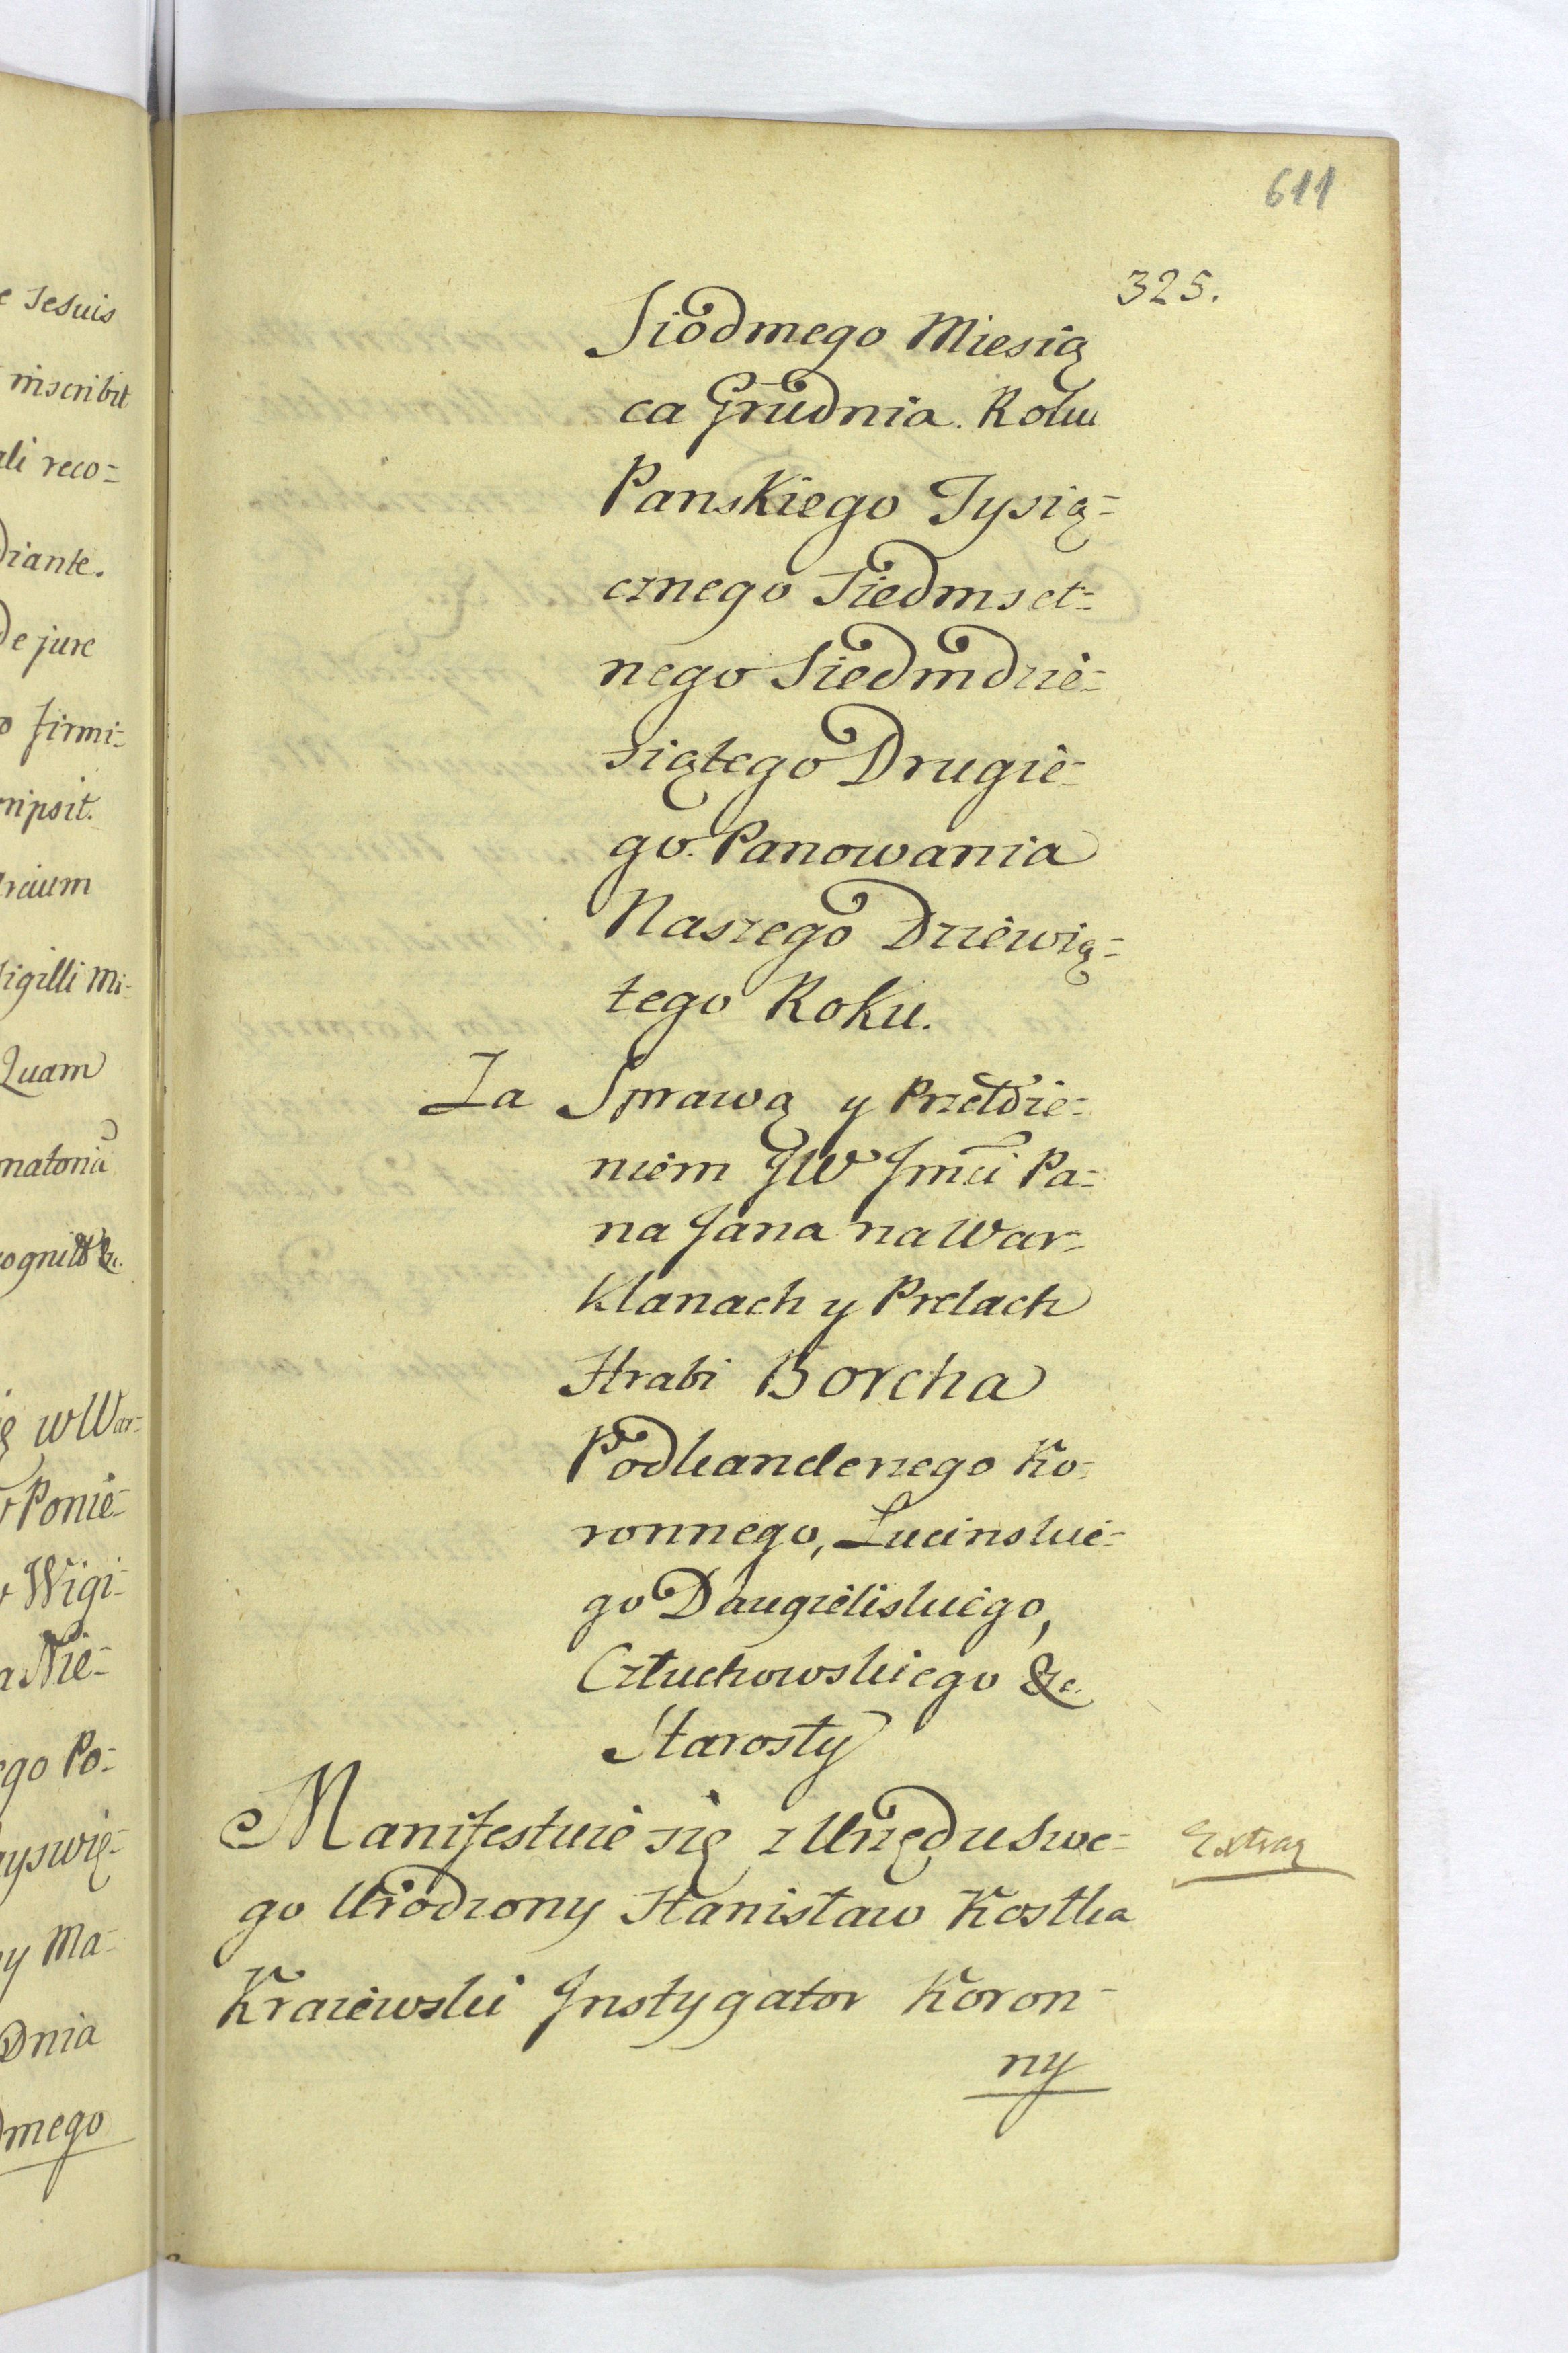 e Jesuis
inscribit
ali reco=
diante.
de jure
o firmi=
ripsit.
rcium
Sigilli Mi=
Quam
ognitt &c.
ę w War=
Ponie=
Wigi=
a Nie=
ego Po=
yswię=
y Ma=
Dnia
dmego
611
325.
Siodmego Miesią
ca Grudnia. Roku
Panskiego Tysią=
cznego Siedmset=
nego Siedmdzie=
siątego Drugie=
go. Panowania
Naszego Dziewią=
tego Roku.
Za Sprawą y Przełoże=
niem JW Jmći Pa=
na Jana na War=
klanach y Prelach
Hrabi Borcha
Podkanclerzego Ko=
ronnego, Lucinskie=
go Daugieliskiego,
Człuchowskiego &c.
Starosty
Manifestuie się z Urzędu Swe=
go Urodzony Stanisław Kostka
Kraiewski Jnstygator Koron=
ny
Extrag